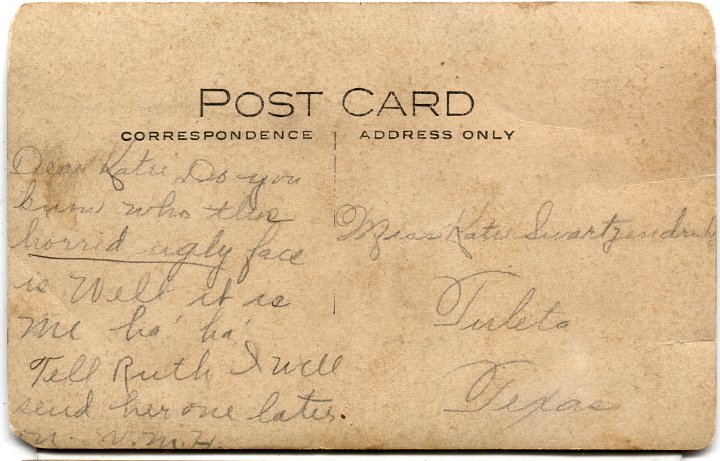 POST CARD
CORRESPONDENCE
ADDRESS ONLY
Dear Katie Do you
know who this
horrid ugly face
is Well it is
me ha! ha!
Tell Ruth I will
send her one later.
V.M.H
Miss Katie Swartzendrub
Tuleta
Texas